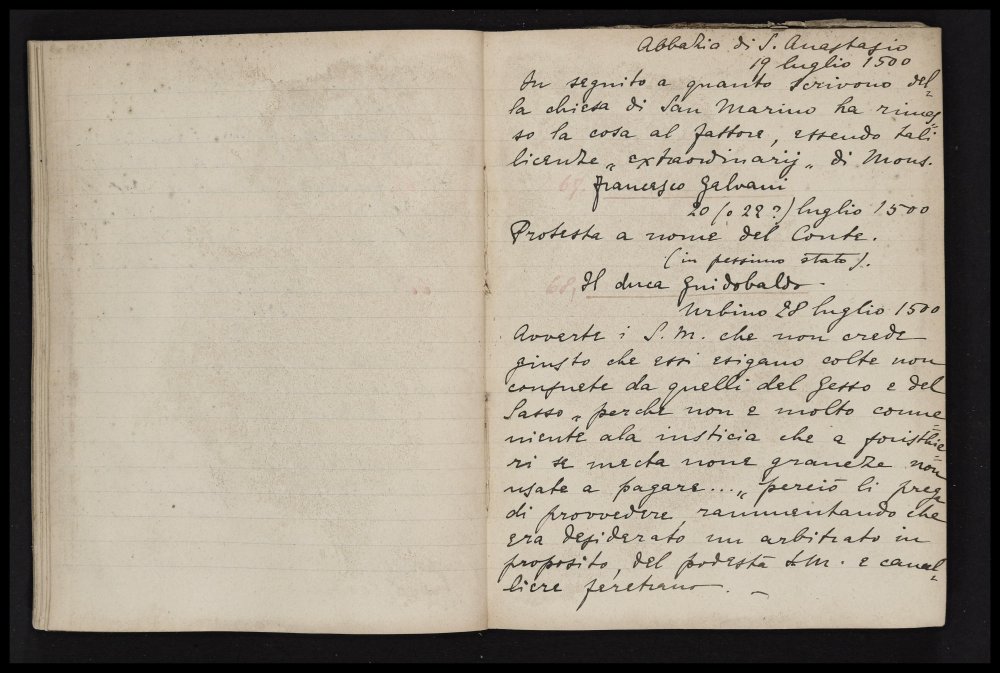 Abbazia di S. Anastasio
19 luglio 1500
In seguito a quanto scrivono del=
la chiesa di San Marino ha rimes=
so la cosa al fattore, essendo tali
licenze „ extraordinarij „ di Mons.
Francesco Galvani
20 (o 22?) luglio 1500
Protesta a nome del Conte.
(in pessimo stato).
Il duca Guidobaldo.
Urbino 28 luglio 1500
Avverte i S. M. che non crede
giusto che essi esigano colte non
consuete da quelli del Gesso e del
Sasso „ perche non e molto conve=
niente ala iusticia che a foristhie=
ri se mecta nove graveze non
usate a pagare... „ perciò li prega
di provvedere rammentando che
era desiderato un arbitrato in
proposito, del podestà S.M. e caval=
liere feretrano. –